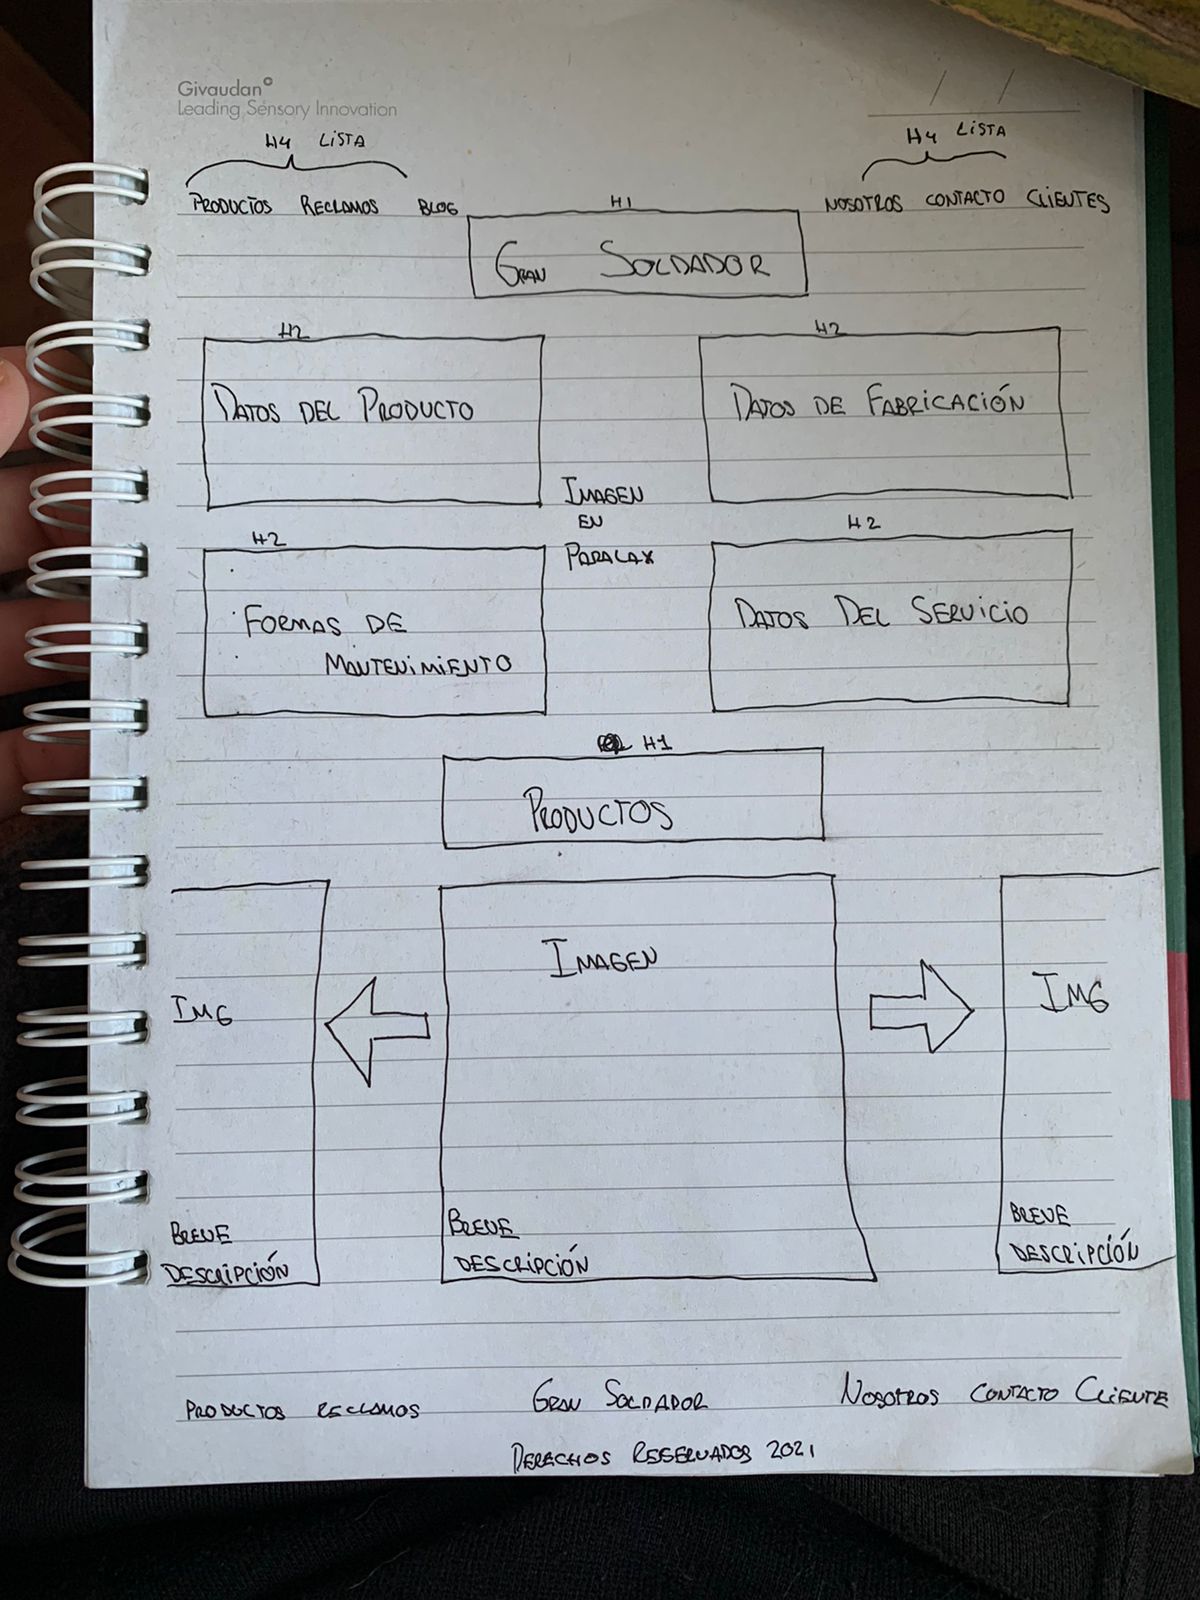 Givaudan
Leading Sensory Innovation
H4 LISTA
H4 LISTA
PRODUCTOS RECLAMOS BLOG
NOSOTROS CONTACTO CLIENTES
H1
GRAN SOLDADOR
H2
H2
DATOS DEL PRODUCTO
DATOS DE FABRICACIÓN
IMAGEN
EN
PARALAX
H2
H2
FORMAS DE
MANTENIMIENTO
DATOS DEL SERVICIO
H1
PRODUCTOS
IMG
IMAGEN
IMG
BREVE
DESCRIPCIÓN
BREVE
DESCRIPCIÓN
BREVE
DESCRIPCIÓN
PRODUCTOS RECLAMOS
GRAN SOLDADOR
NOSOTROS CONTACTO CLIENTE
DERECHOS RESERVADOS 2021